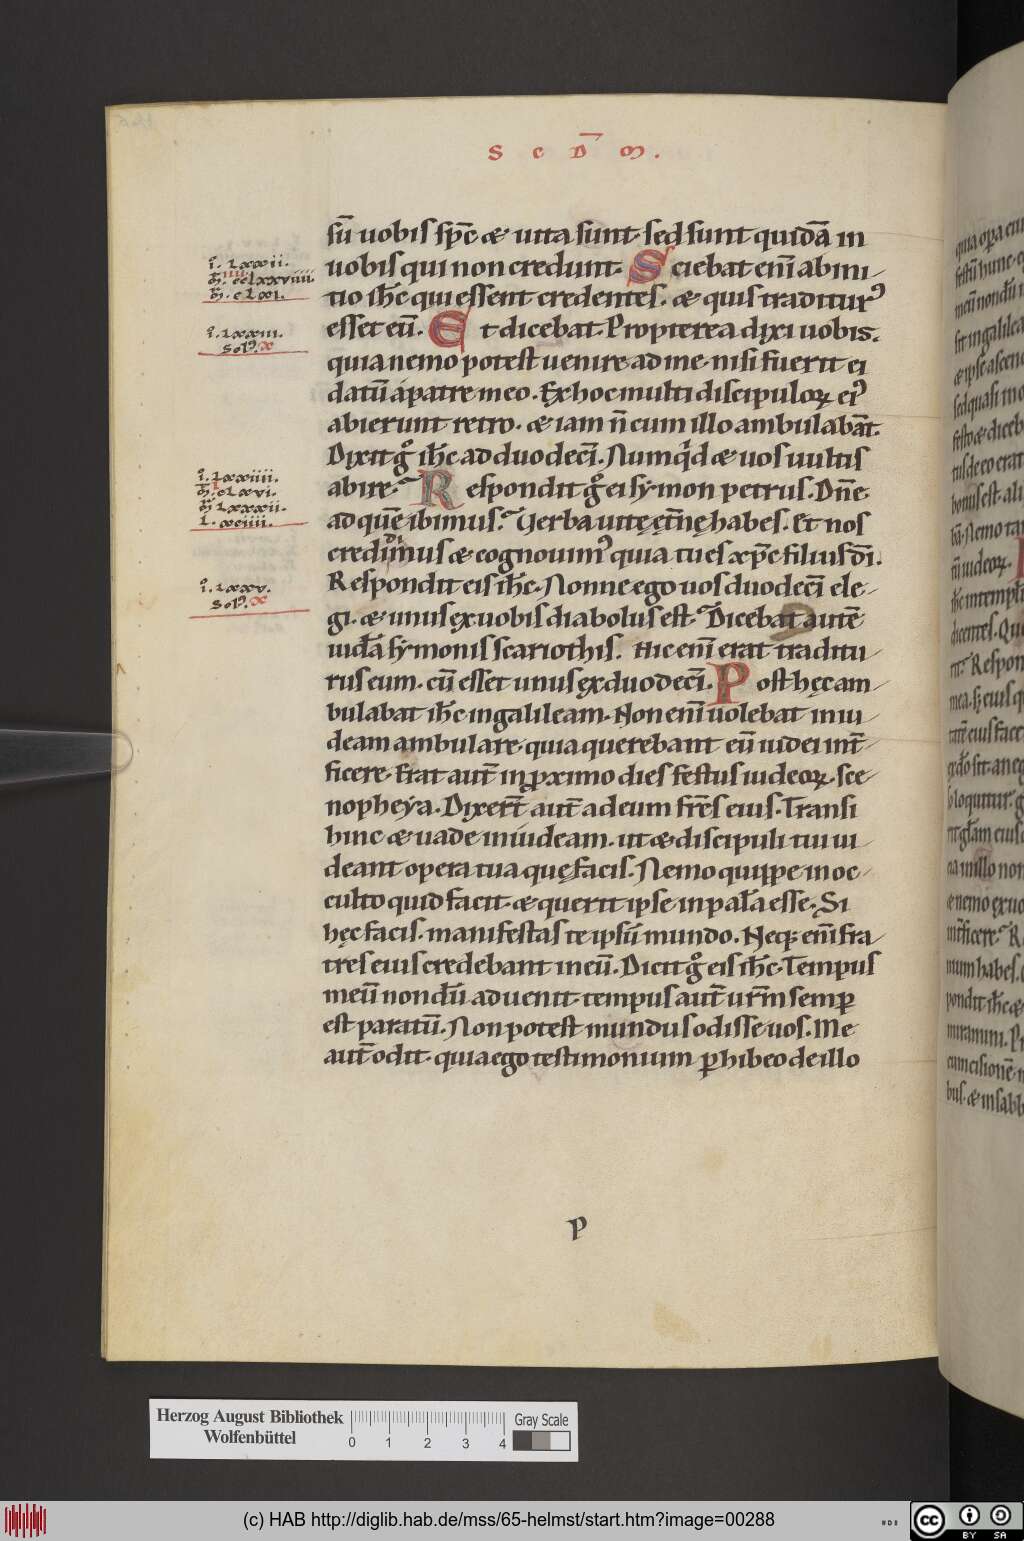 S C D̅ M .
su̅ uobis sp̅c & uita sunt. sed sunt quida̅ in
uobis qui non credunt. Sciebat eni̅ ab ini-
tio ih̅c qui essent credentes. & quis traditur᾽
esset eu̅. Et dicebat. Propterea dixi uobis.
quia nemo potest uenire ad me. nisi fuerit ei
datu̅ a patre meo. Ex hoc multi discipuloꝝ ei᾽
abierunt retro. & iam n̅ cum illo ambulaba̅t.
Dixit gͦ ih̅c ad duodeci̅. Numqͥd & uos uultis
abire. Respondit gͦ ei symon petrus. Dn̅e
ad que̅ ibimus. Uerba uitę ęt̅nę habes. Et nos
credimus & cognouim᾽ quia tu es xp̅c filius di̅.
Respondit eis ih̅c. Nonne ego uos duodeci̅ ele-
gi. & unus ex uobis diabolus est. Dicebat aute̅
iuda̅ symonis scariothis. Hic eni̅ erat traditu-
rus eum. cu̅ esset unus ex duodeci̅. Post hęc am-
bulabat ih̅c in galileam. Non eni̅ uolebat in iu-
deam ambulare. quia querebant eu̅ iudei int̅-
ficere. Erat aut̅ in ꝓximo dies festus iudeoꝝ. sce-
nopheya. Dixer̅t aut̅ ad eum fr̅es eius. Transi
hinc & uade in iudeam. ut & discipuli tui ui-
deant opera tua quę facis. Nemo quippe in oc-
culto quid facit. & querit ipse in pala̅ esse. Si
hęc facis. manifesta te ipsu̅ mundo. Neq; eni̅ fra-
tres eius credebant in eu̅. Dicit gͦ eis ih̅c. Tempus
meu̅ nondu̅ aduenit. tempus aut̅ ur̅m semꝑ
est paratu̅. Non potest mundus odisse uos. Me
aut̅ odit. quia ego testimonium ꝑhibeo de illo
p
i. lxxii.
m̅. cclxxviiii.
m̅. clxi.
i. lxxiii.
x
i. lxxiiii.
m̅. clxvi.
m̅. lxxxii.
l. xciiii.
i. lxxv.
x
Herzog August Bibliothek
Wolfenbüttel
0 1 2 3 4
Gray Scale
(c) HAB http://diglib.hab.de/mss/65-helmst/start.htm?image=00288
cc BY SA